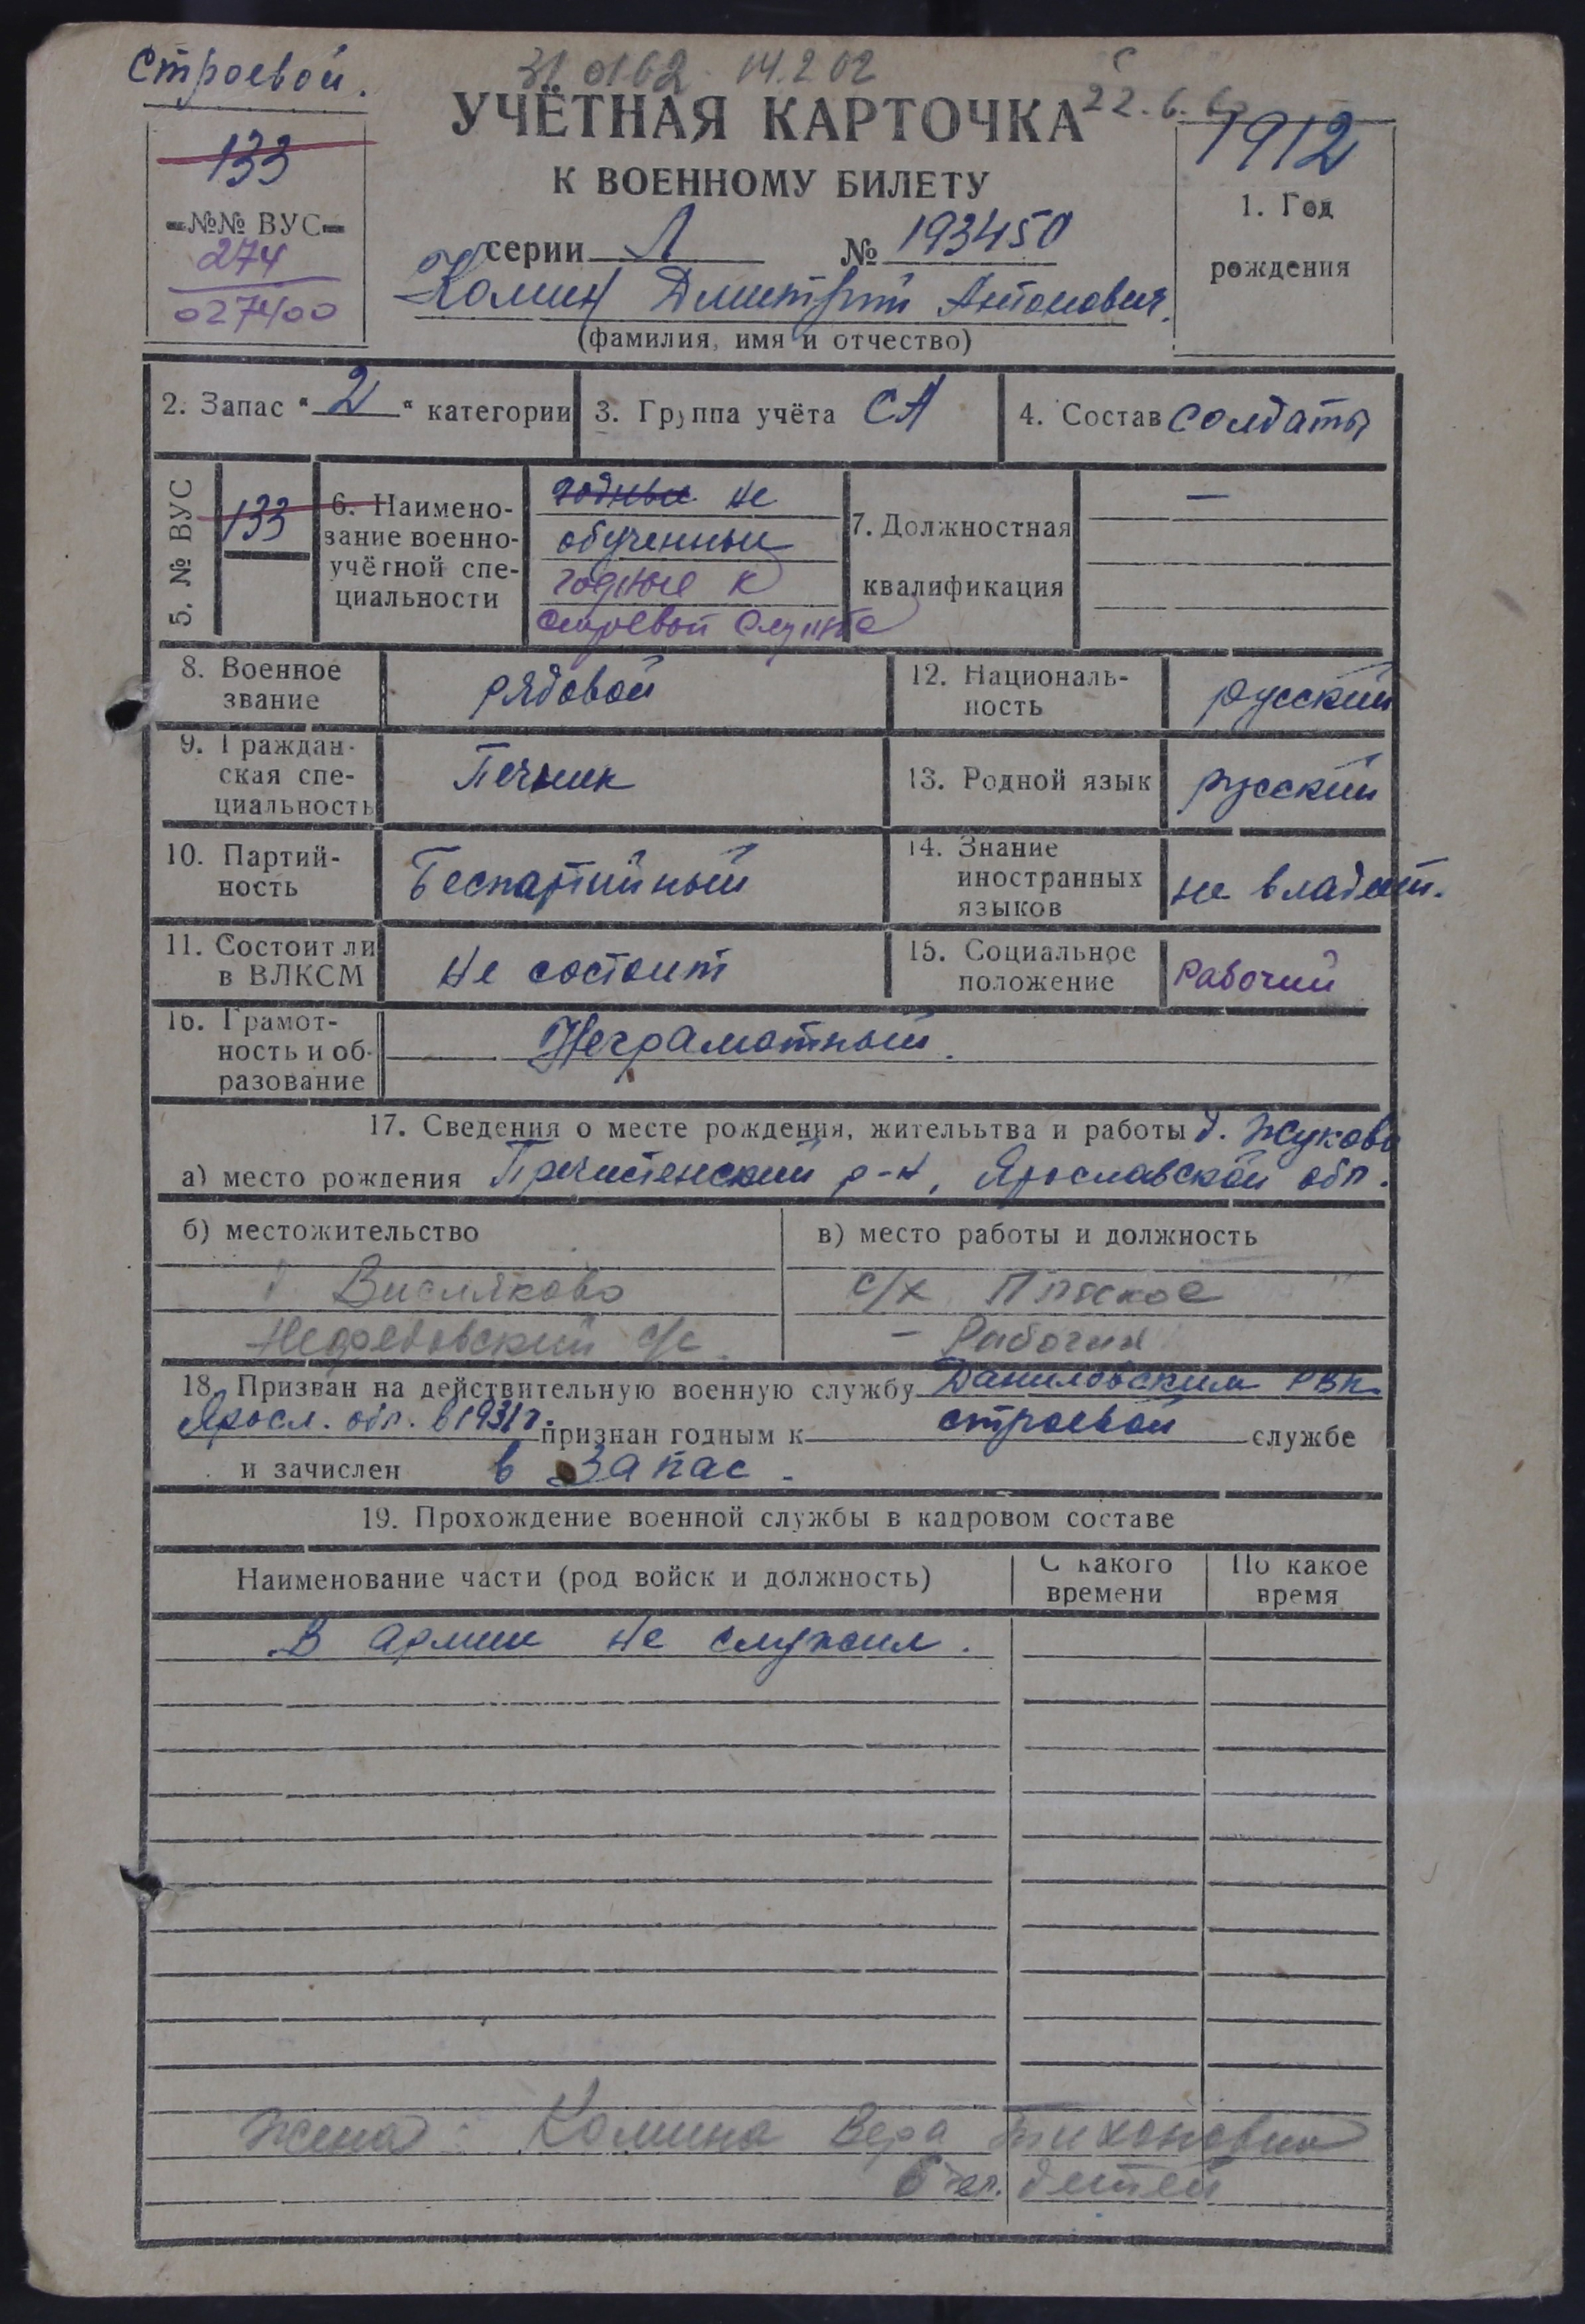 Строевой.
31 01 62 14.2 62
22.6.6
УЧЁТНАЯ КАРТОЧКА
К ВОЕННОМУ БИЛЕТУ
133
№№ ВУС
274
027400
1912
1. Год
рождения
серии Л № 193450
Комин Дмитрий Антонович.
(фамилия, имя и отчество)
2. Запас "2" категории
3. Группа учёта СА
4. Состав солдаты
5. № ВУС
133
6. Наимено-
вание военно-
учётной спе-
циальности
годные не
обученные
годные к
строевой службе
7. Должностная
квалификация
—
8. Военное
звание
рядовой
12. Националь-
ность
русский
9. Граждан-
ская спе-
циальность
Печник
13. Родной язык
русский
10. Партий-
ность
Беспартийный
14. Знание
иностранных
языков
не владеет.
11. Состоит ли
в ВЛКСМ
не состоит
15. Социальное
положение
Рабочий
16. Грамот-
ность и об-
разование
Неграмотный.
17. Сведения о месте рождения, жительства и работы д. Жуково
а) место рождения Пречистенский р-н, Ярославской обл.
б) местожительство
д Висляково
Нефедовский с/с.
в) место работы и должность
с/х
- Рабочий
18. Призван на действительную военную службу Даниловским РВК
Яросл. обл. в 1931г. признан годным к строевой службе
и зачислен в запас.
19. Прохождение военной службы в кадровом составе
Наименование части (род войск и должность)
С какого
времени
По какое
время
В армии не служил.
Жена: Комина Вера Тихоновна
6 чел. детей